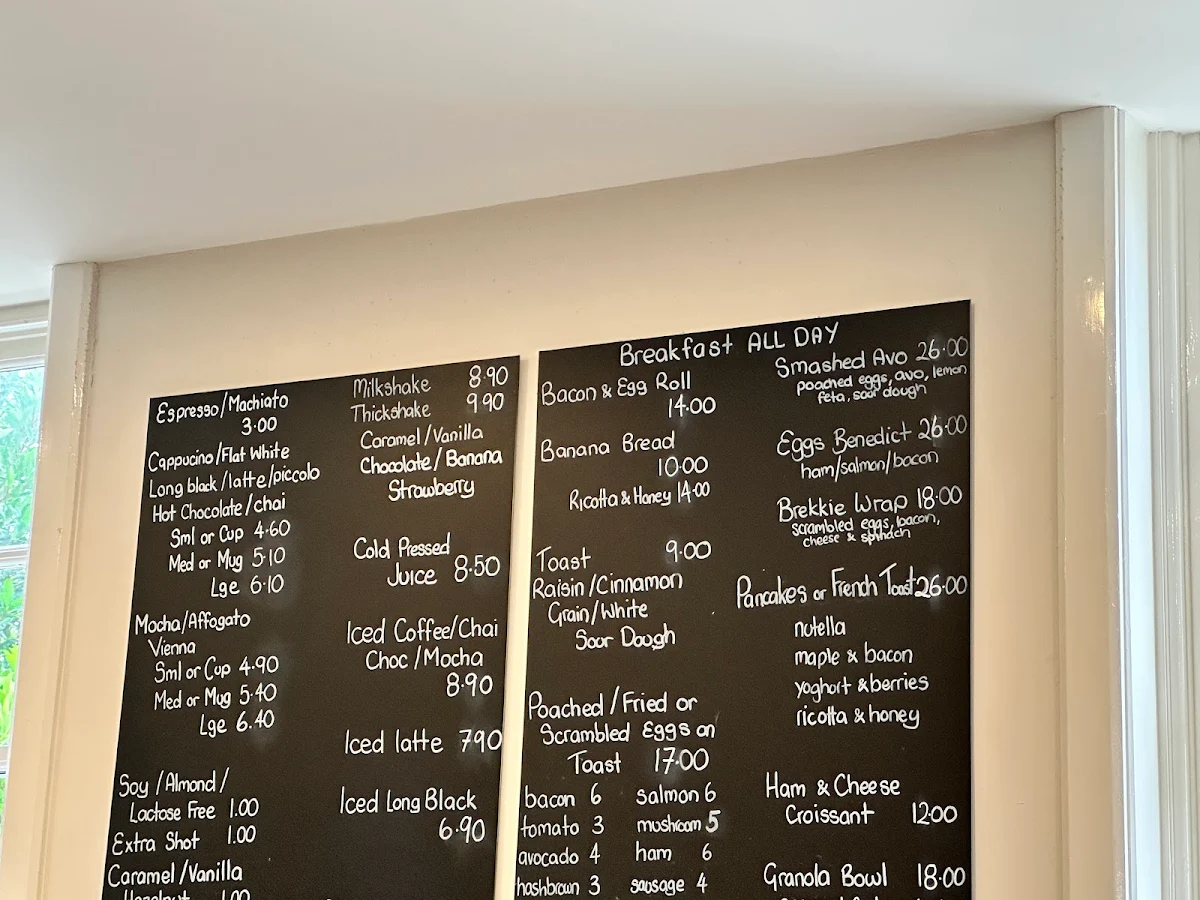 Espresso/Machiato
3.00
Cappucino/Flat White
Long black/latte/piccolo
Hot Chocolate/chai
Sml or Cup 4.60
Med or Mug 5.10
Lge 6.10
Mocha/Affogato
Vienna
Sml or Cup 4.90
Med or Mug 5.40
Lge 6.40
Soy/Almond/
Lactose Free 1.00
Extra Shot 1.00
Caramel/Vanilla
Hazelnut 1.00
Milkshake 8.90
Thickshake 9.90
Caramel/Vanilla
Chocolate/Banana
Strawberry
Cold Pressed
Juice 8.50
Iced Coffee/Chai
Choc/Mocha
8.90
Iced latte 7.90
Iced Long Black
6.90
Breakfast ALL DAY
Bacon & Egg Roll
14.00
Banana Bread
10.00
Ricotta & Honey 14.00
Toast 9.00
Raisin/Cinnamon
Grain/White
Sour Dough
Poached/Fried or
Scrambled Eggs on
Toast 17.00
bacon 6 salmon 6
tomato 3 mushroom 5
avocado 4 ham 6
hashbrown 3 sausage 4
Smashed Avo 26.00
poached eggs, avo, lemon
feta, sour dough
Eggs Benedict 26.00
ham/salmon/bacon
Brekkie Wrap 18.00
scrambled eggs, bacon,
cheese & spinach
Pancakes or French Toast 26.00
nutella
maple & bacon
yoghort & berries
ricotta & honey
Ham & Cheese
Croissant 12.00
Granola Bowl 18.00